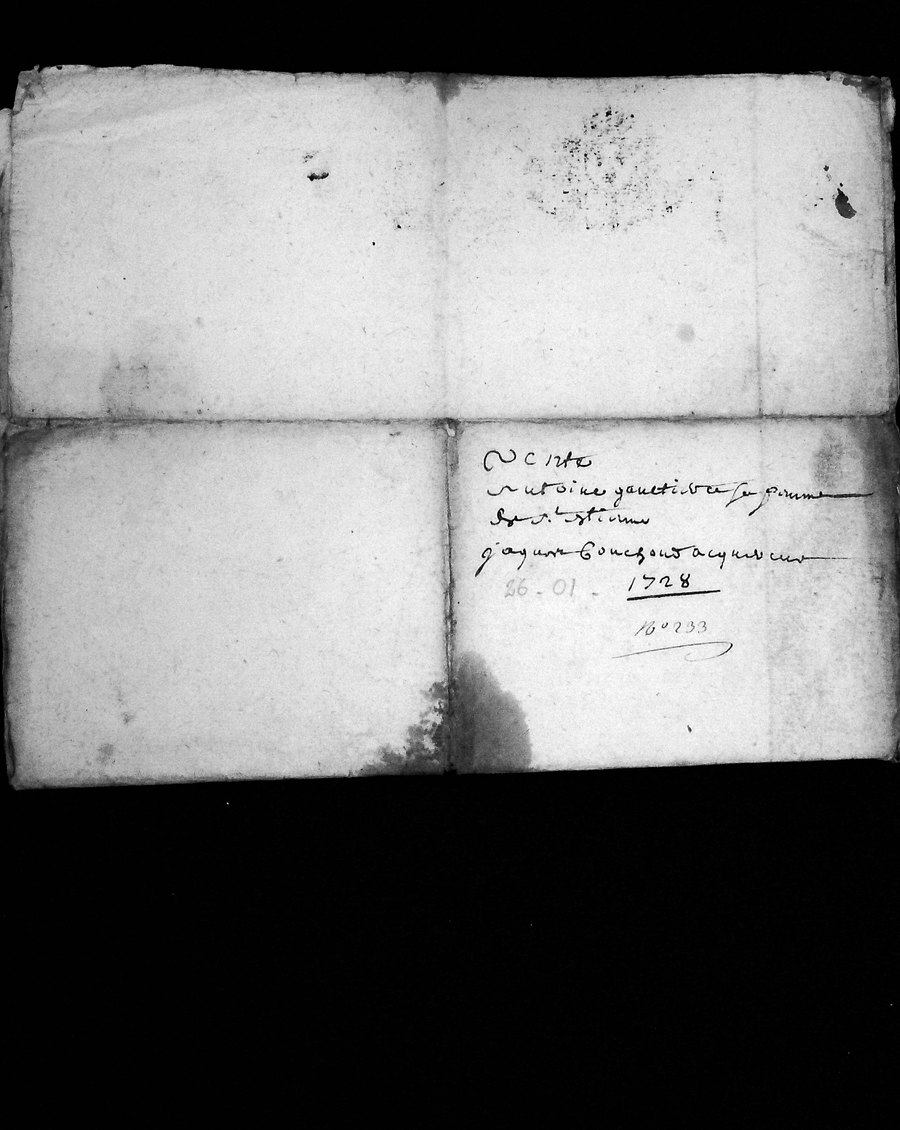 Vente
Antoine gautier et sa femme
de St Etienne
jaques Bouchoud acquereur
26 - 01 - 1728
No 233